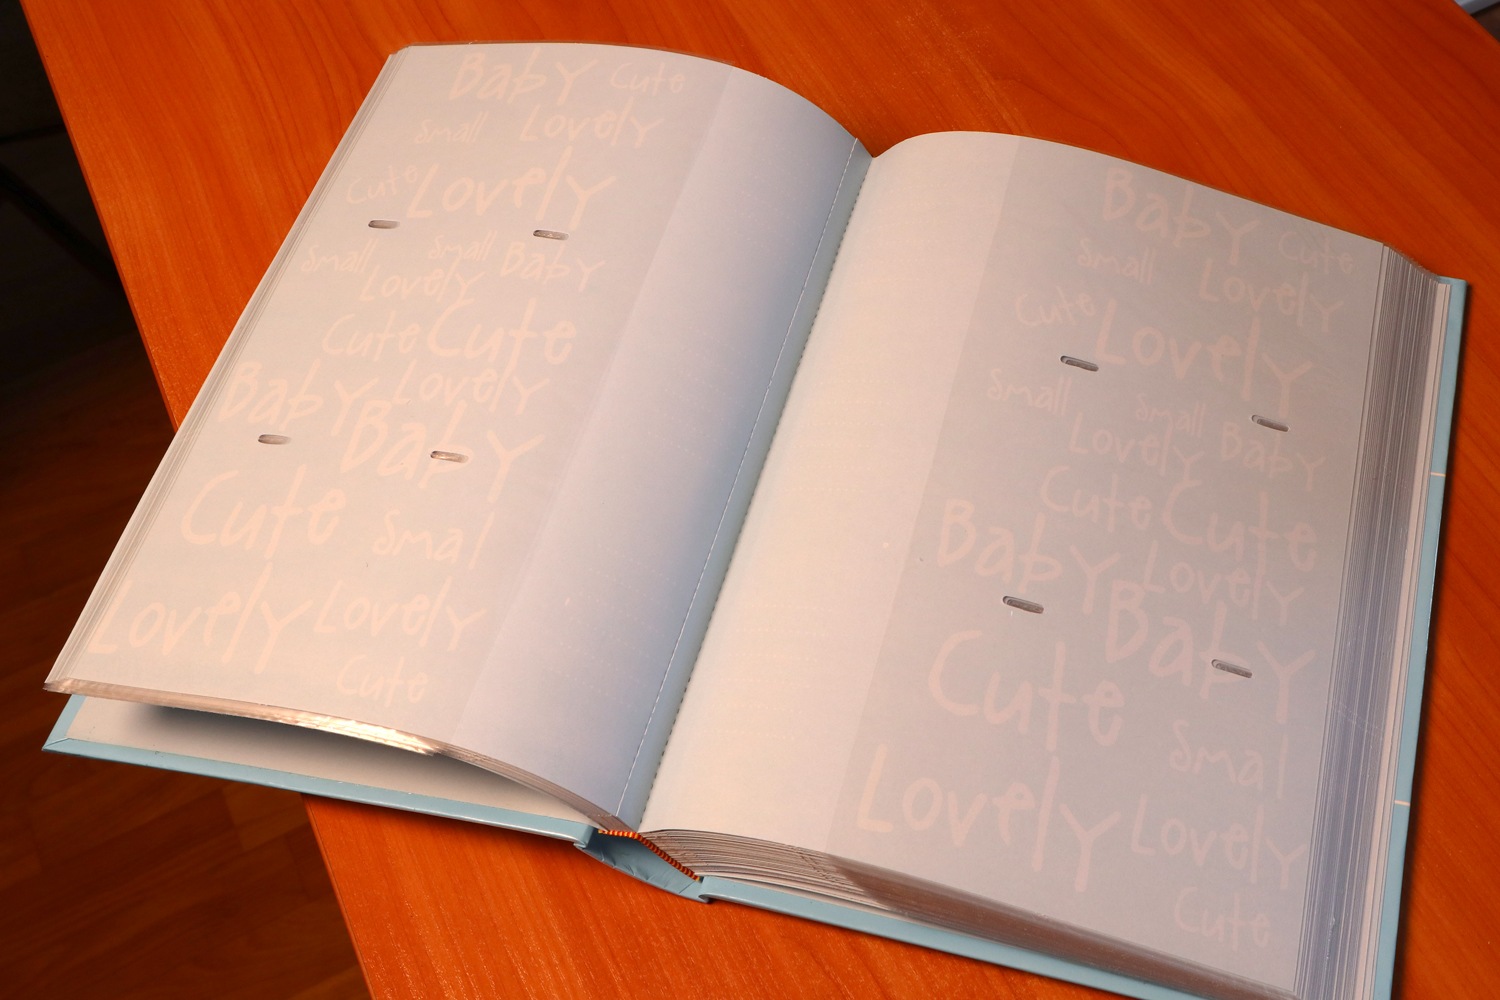 Baby Cute
Small Lovely
Cute Lovely
Small Small Baby
Lovely
Cute Cute
Baby Lovely
Baby
Cute Smal
Lovely Lovely
Cute
Baby Cute
Small Lovely
Cute Lovely
Small Small Baby
Lovely
Cute Cute
Baby Lovely
Baby
Cute Smal
Lovely Lovely
Cute